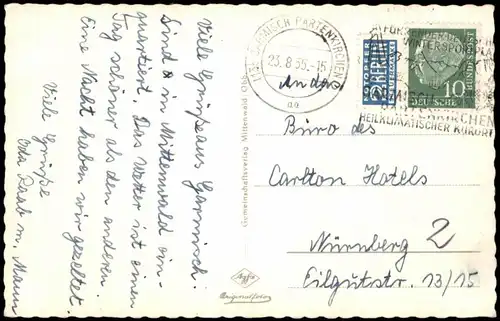 Viele Grüße aus Garmisch.
Sind in Mittenwald ein-
quartiert. Das Wetter ist einen
Tag schöner als den anderen
Eine Nacht haben wir gezeltet.
Viele Grüße
Oda Raab m. Mann
Gemeinschaftsverlag Mittenwald Obb.
Agfa
Originalfoto
GARMISCH PARTENKIRCHEN
23.8.55.-15
aa
NOTOPFER
2 BERLIN
STEUERMARKE
DEUTSCHE BUNDESPOST
10
WINTERSPORTPLATZ
GARMISCH-
PARTENKIRCHEN
HEILKLIMATISCHER KURORT
An das
Büro des
Carlton Hotels
Nürnberg 2
Eilgutstr. 13/15